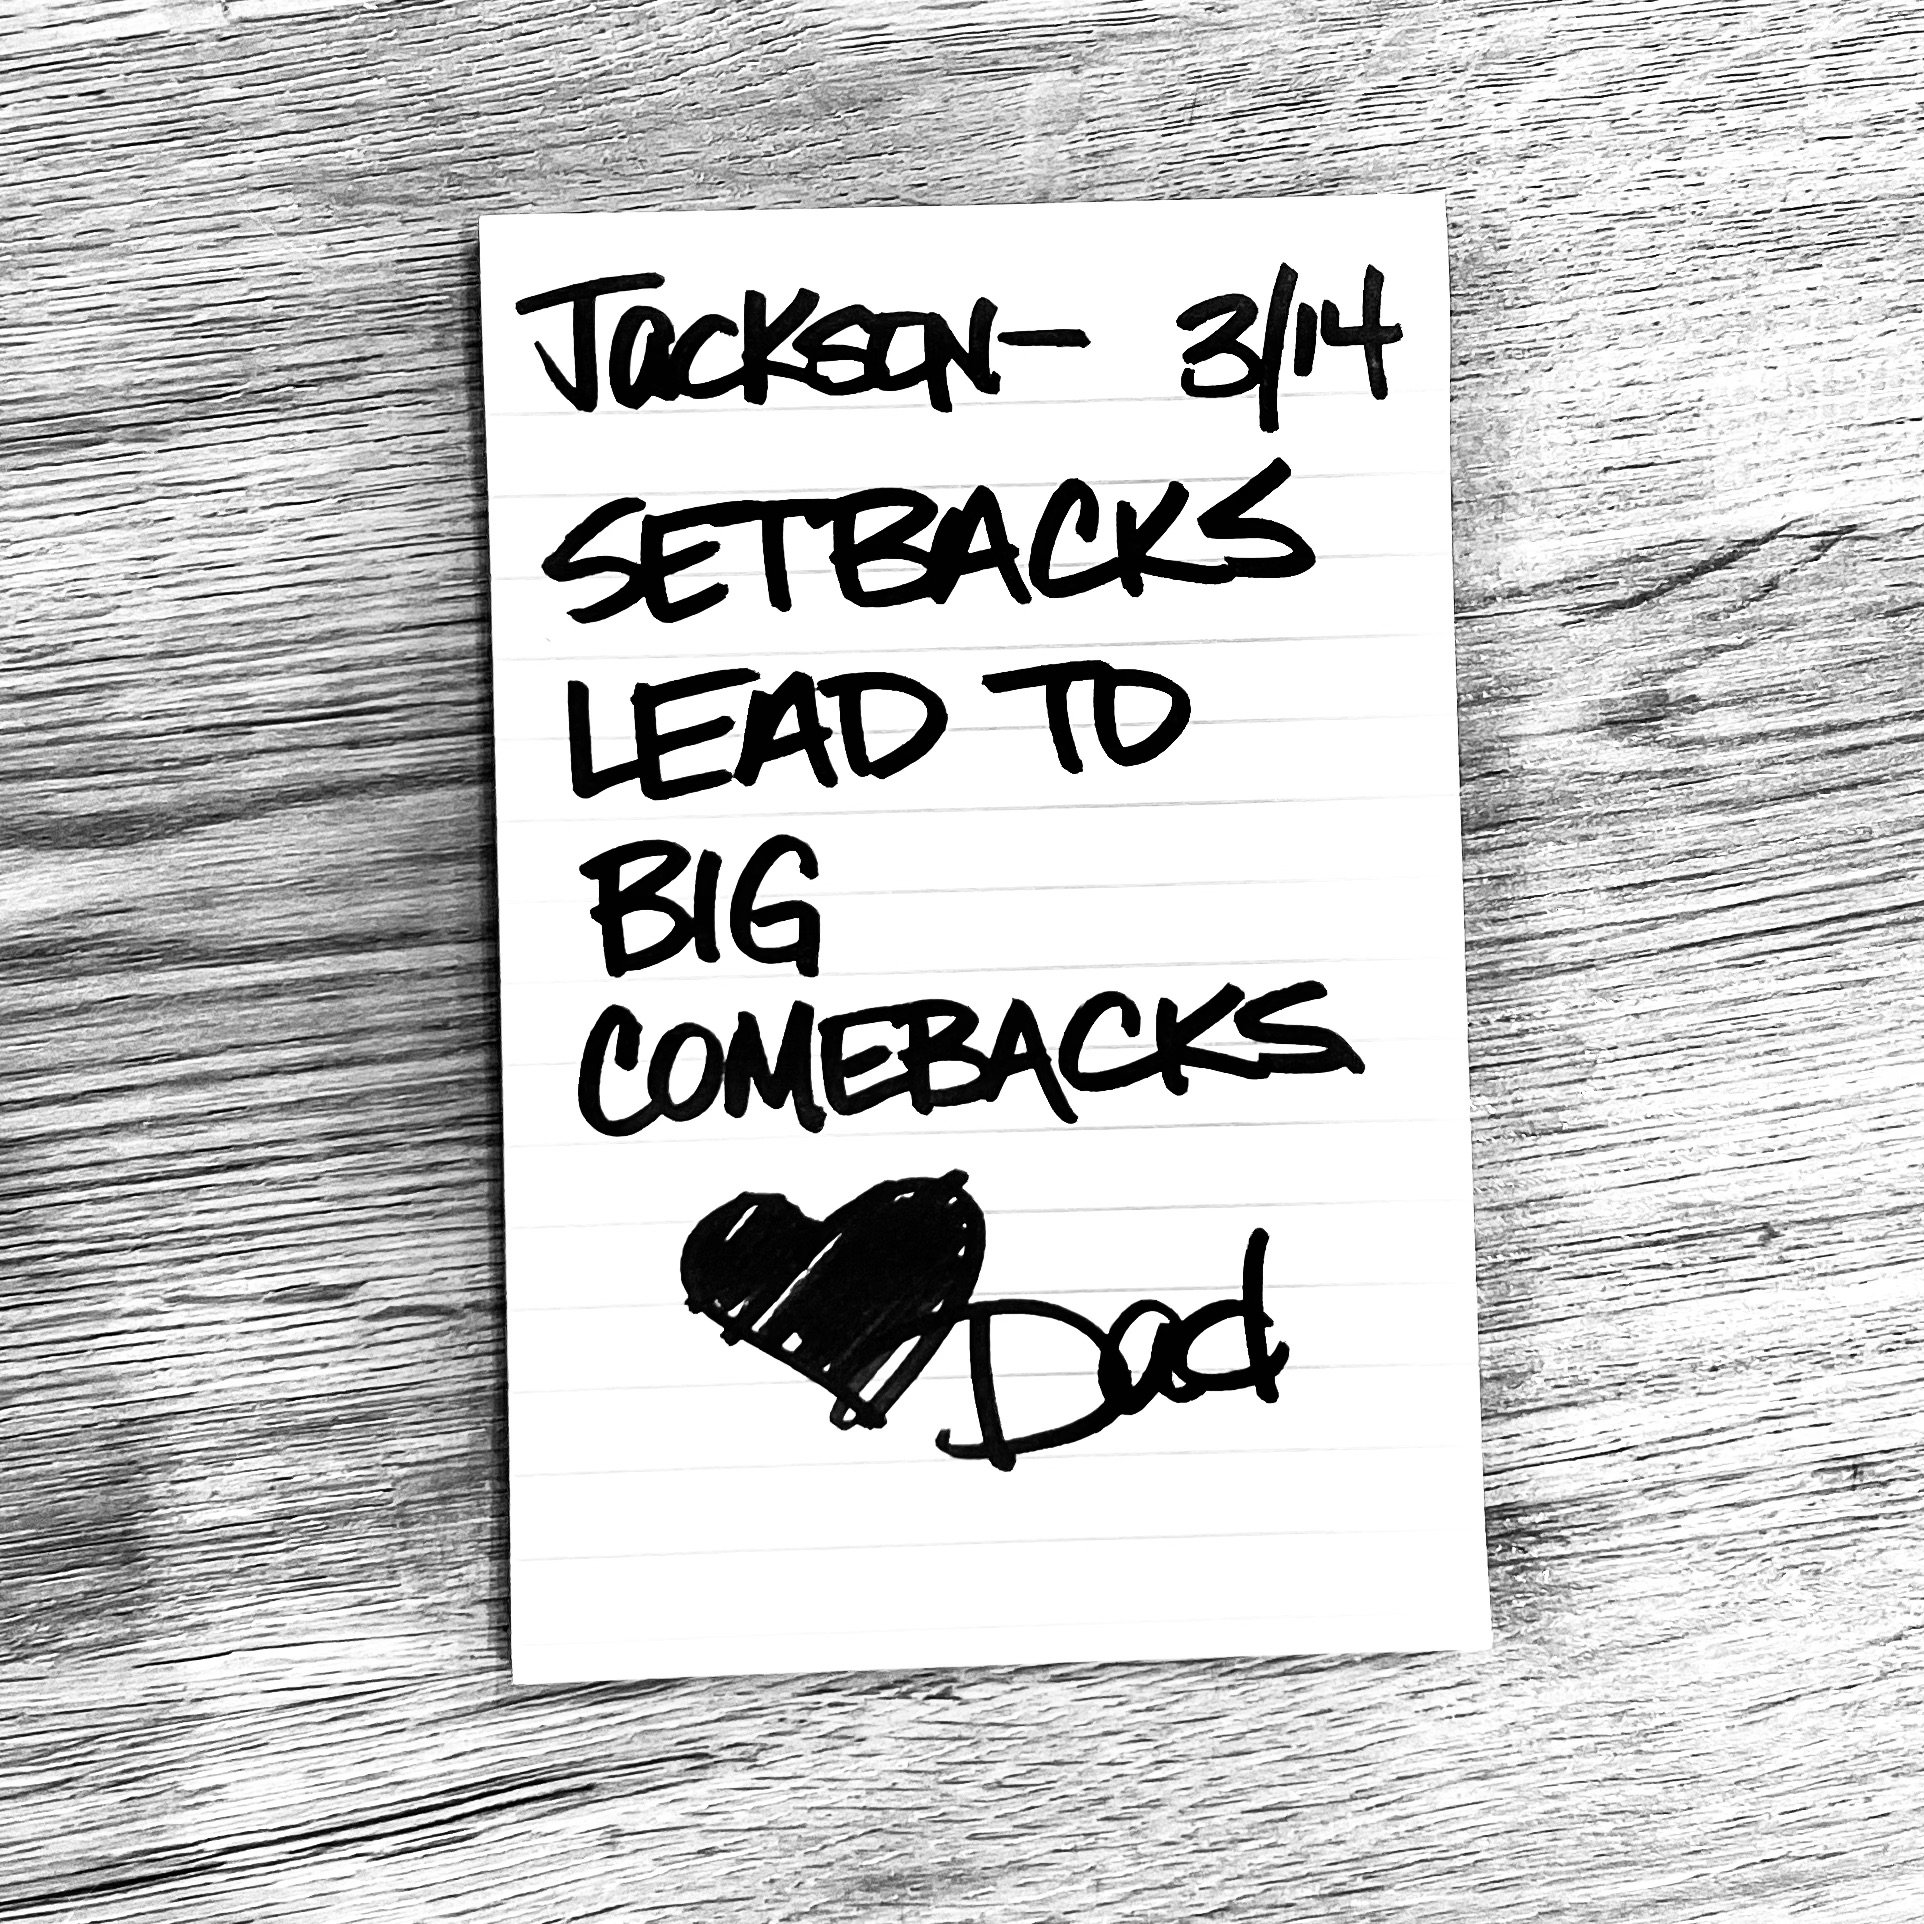 Jackson— 3/14
SETBACKS
LEAD TO
BIG
COMEBACKS
Dad